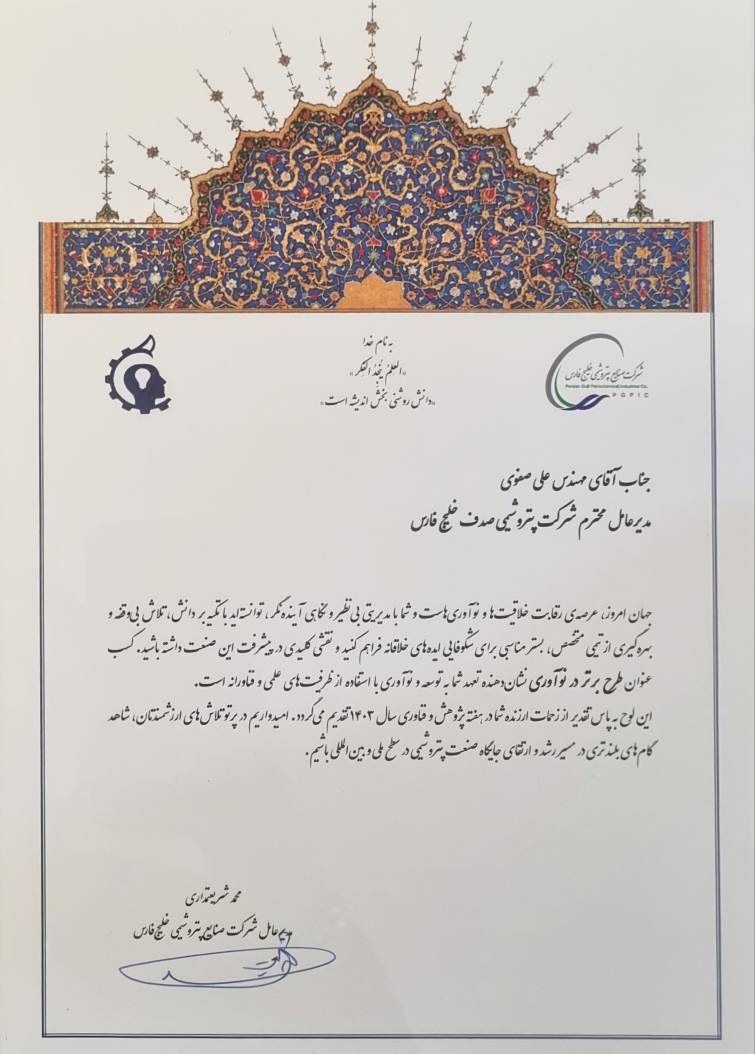 به نام خدا
«العلمُ یُنجِدُ الفکر»
«دانش روشنی بخش اندیشه است»
شرکت صنایع پتروشیمی خلیج فارس
Persian Gulf Petrochemical Industries Co.
PGPIC
جناب آقای مهندس علی صفوی
مدیرعامل محترم شرکت پتروشیمی صدف خلیج فارس
جهان امروز، عرصه‌ی رقابت خلاقیت‌ها و نوآوری‌هاست و شما با مدیریتی بی‌نظیر و نگاهی آینده‌نگر، توانسته‌اید با تکیه بر دانش، تلاش بی‌وقفه و
بهره‌گیری از تیمی متخصص، بستر مناسبی برای شکوفایی ایده‌های خلاقانه فراهم کنید و نقشی کلیدی در پیشرفت این صنعت داشته باشید. کسب
عنوان طرح برتر در نوآوری نشان‌دهنده تعهد شما به توسعه و نوآوری با استفاده از ظرفیت‌های علمی و فناورانه است.
این لوح به پاس تقدیر از زحمات ارزنده شما در هفته پژوهش و فناوری سال ۱۴۰۳ تقدیم می‌گردد. امیدواریم در پرتو تلاش‌های ارزشمندتان، شاهد
گام‌های بلندتری در مسیر رشد و ارتقای جایگاه صنعت پتروشیمی در سطح ملی و بین‌المللی باشیم.
محمد شریعتمداری
مدیرعامل شرکت صنایع پتروشیمی خلیج فارس